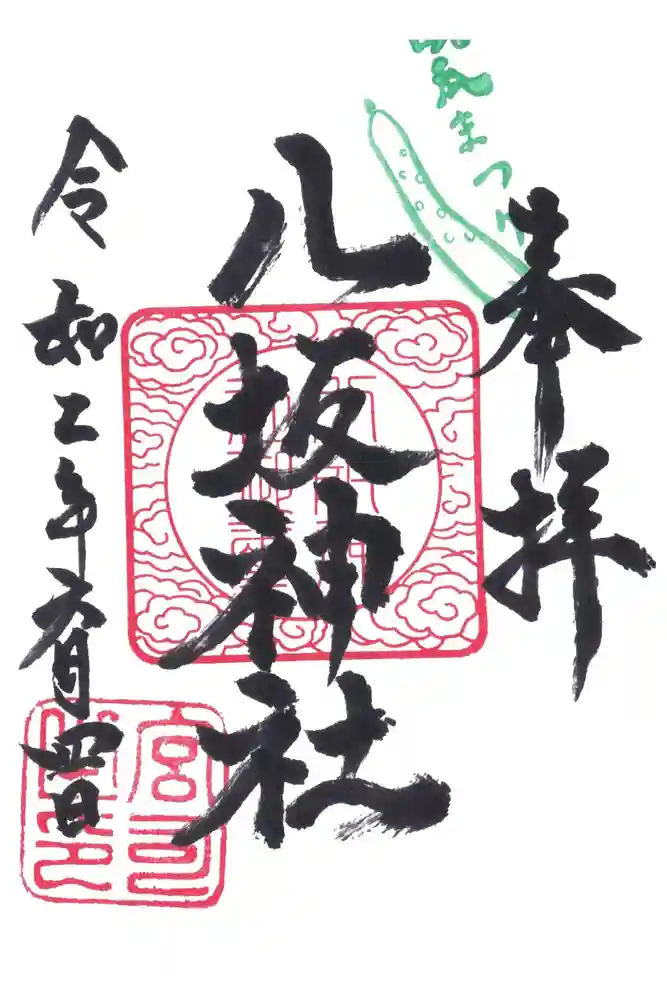 奉拝
まつり
八坂神社
令和五年六月四日
宮司之印